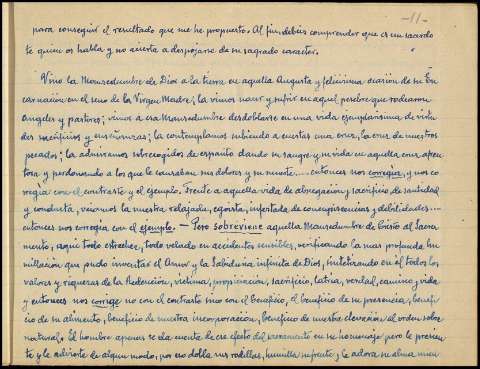 -11-
para conseguir el resultado que me he propuesto. Al fin, debéis comprender que es un sacerdo
te quien os habla y no acierta a despojarse de su sagrado caracter.
Vino la Mansedumbre de Dios a la tierra en aquella Augusta y felicísima ocasión de su En
carnación en el seno de la Virgen Madre; la vimos nacer y sufrir en aquel pesebre que rodearon
Angeles y pastores; vimos a esa Mansedumbre desdoblarse en una vida ejemplarísima de virtu
des sacrificios y enseñanzas; la contemplamos subiendo a cuestas una cruz, la cruz de nuestros
pecados; la admiramos sobrecogidos de espanto dando su sangre y su vida en aquella cruz afren
tosa y perdonando a los que le causaban sus dolores y su muerte.... entonces nos corregía, y nos co
rregía con el contraste y el ejemplo. Frente a aquella vida de abnegación y sacrificio de santidad
y conducta, veíamos la nuestra relajada, egoísta, infestada de concupiscencias y debilidades....
entonces nos corregía con el ejemplo. - Pero sobreviene aquella Mansedumbre de Cristo al Sacra
mento; aquí todo estrechez, todo velado en accidentes sensibles, verificando la mas profunda hu
millación que pudo inventar el Amor y la Sabiduría infinita de Dios, sintetizando en él todos los
valores y riquezas de la Redención, víctima, propiciación, sacrificio, latria, verdad, camino y vida
y entonces nos corrige no con el contraste sino con el beneficio, el beneficio de su presencia, benefi
cio de su alimento, beneficio de nuestra incorporación, beneficio de nuestra elevación al orden sobre
natural. El hombre apenas se da cuenta de ese efecto del sacramento en su homenaje pero le presien
te y le advierte de algun modo, por eso dobla sus rodillas, humilla su frente y le adora su alma